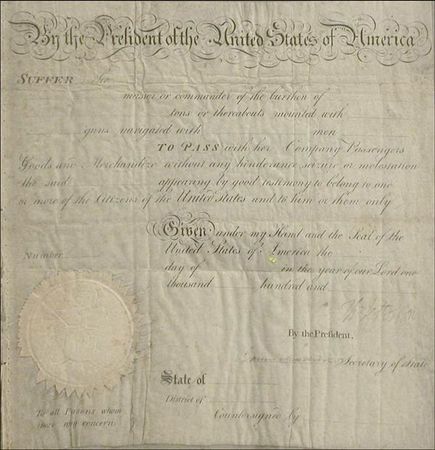 By the President of the United States of America
SUFFER the
master or commander of the burthen of
tons or thereabouts mounted with
guns navigated with men
TO PASS with her Company Passengers
Goods and Merchandize without any hinderance seizure or molestation
the said appearing by good testimony to belong to one
or more of the Citizens of the United States and to him or them only
Given under my Hand and the Seal of the
United States of America the
Number
day of in the year of our Lord one
thousand hundred and
By the President,
Secretary of State
State of
District of
To all Persons whom
these may concern.
Countersigned by